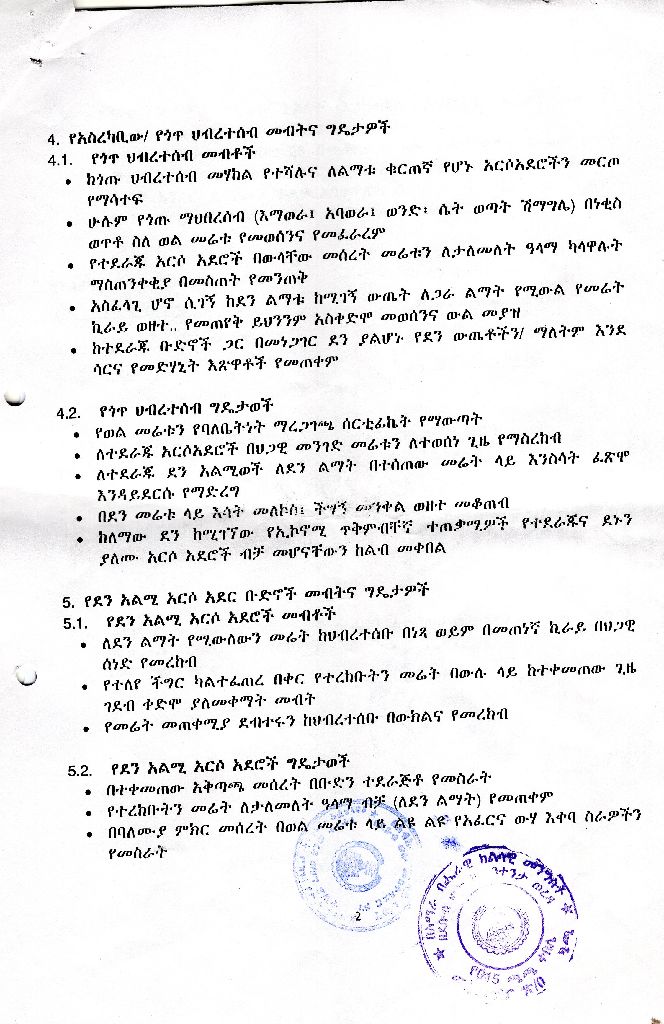 4. የአስረካቢው/ የጎጥ ህብረተሰብ መብትና ግዴታዎች
4.1. የጎጥ ህብረተሰብ መብቶች
• ከጎጡ ህብረተሰብ መሃከል የተሻሉና ለልማቱ ቁርጠኛ የሆኑ አርሶአደሮችን መርጦ
የማሳተፍ
• ሁሉም የጎጡ ማህበረሰብ (እማወራ፤ አባወራ፤ ወንድ፣ ሴት ወጣት ሽማግሌ) በነቂስ
ወጥቶ ስለ ወል መሬቱ የመወሰንና የመፈራረም
• የተደራጁ አርሶ አደሮች በውላቸው መሰረት መሬቱን ለታለመለት ዓላማ ካላዋሉት
ማስጠንቀቂያ በመስጠት የመንጠቅ
• አስፈላጊ ሆኖ ሲገኝ ከደን ልማቱ ከሚገኝ ውጤት ለጋራ ልማት የሚውል የመሬት
ኪራይ ወዘተ.. የመጠየቅ ይህንንም አስቀድሞ መወሰንና ውል መያዝ
• ከተደራጁ ቡድኖች ጋር በመነጋገር ደን ያልሆኑ የደን ውጤቶችን/ ማለትም እንደ
ሳርና የመድሃኒት እጽዋቶች የመጠቀም
4.2. የጎጥ ህብረተሰብ ግዴታወች
• የወል መሬቱን የባለቤትነት ማረጋገጫ ሰርቲፊኬት የማውጣት
• ለተደራጁ አርሶአደሮች በህጋዊ መንገድ መሬቱን ለተወሰነ ጊዜ የማስረከብ
• ለተደራጁ ደን አልሚወች ለደን ልማት በተሰጠው መሬት ላይ እንስሳት ፈጽሞ
እንዳይደርሱ የማድረግ
• በደን መሬቱ ላይ እሳት መለኮስ፤ ችግኝ መንቀል ወዘተ መቆጠብ
• ከለማው ደን ከሚገኘው የኢኮኖሚ ጥቅምብቸኛ ተጠቃሚዎች የተደራጁና ደኑን
ያለሙ አርሶ አደሮች ብቻ መሆናቸውን ከልብ መቀበል
5. የደን አልሚ አርሶ አደር ቡድኖች መብትና ግዴታዎች
5.1. የደን አልሚ አርሶ አደሮች መብቶች
• ለደን ልማት የሚውለውን መሬት ከህብረተሰቡ በነጻ ወይም በመጠነኛ ኪራይ በህጋዊ
ሰነድ የመረከብ
• የተለየ ችግር ካልተፈጠረ በቀር የተረከቡትን መሬት በውሉ ላይ ከተቀመጠው ጊዜ
ገደብ ቀድሞ ያለመቀማት መብት
• የመሬት መጠቀሚያ ደብተሩን ከህብረተሰቡ በውክልና የመረከብ
5.2. የደን አልሚ አርሶ አደሮች ግዴታወች
• በተቀመጠው አቅጣጫ መሰረት በቡድን ተደራጅቶ የመስራት
• የተረከቡትን መሬት ለታለመለት ዓላማ ብቻ (ለደን ልማት) የመጠቀም
• በባለሙያ ምክር መሰረት በወል መሬቱ ላይ ልዩ ልዩ የአፈርና ውሃ እቀባ ስራዎችን
የመስራት
2
በአማራ ብሔራዊ ክልላዊ መንግስት